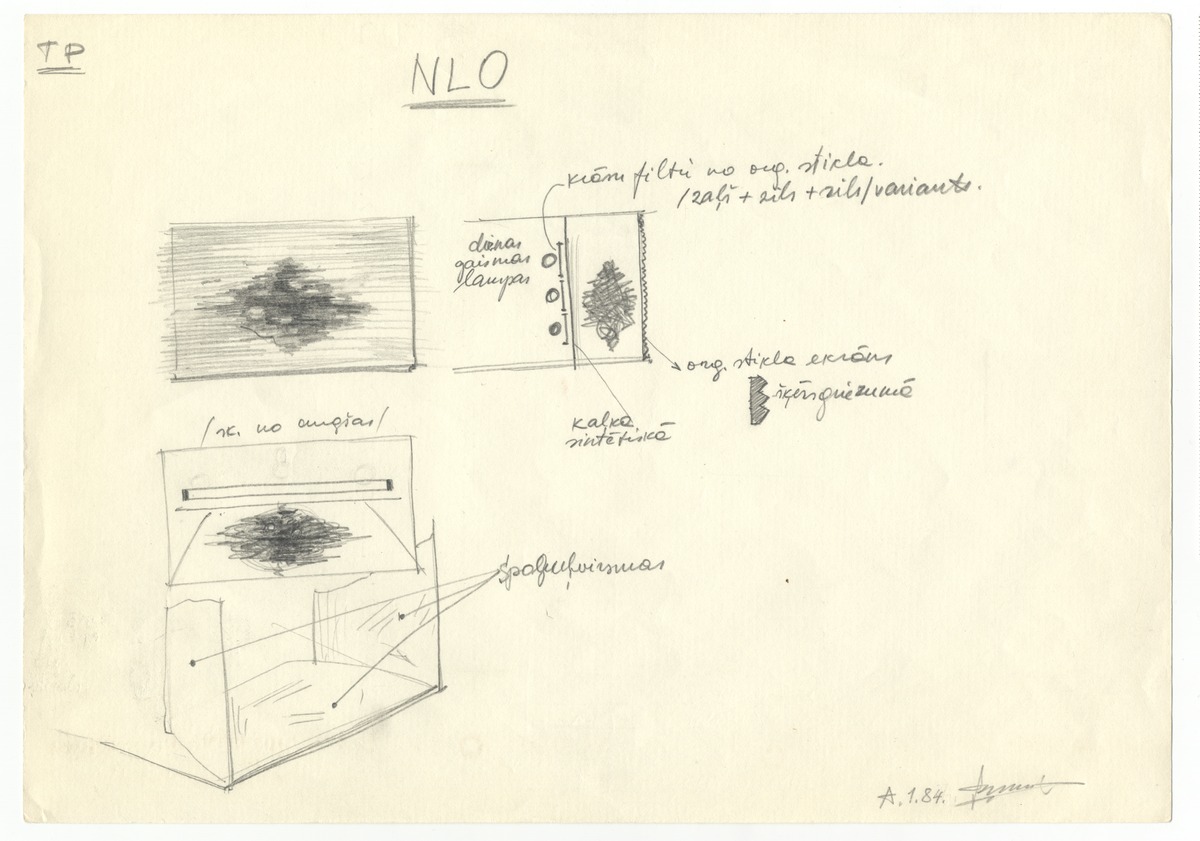 TP
NLO
krāsu filtri no org. stikla.
/zaļš + zils + zils/variants.
dienas
gaismas
lampas
org. stikla ekrāns
šķērsgriezumā
kaļka
sintētiskā
/sk. no augšas/
Spoguļvirsmas
A.1.84.